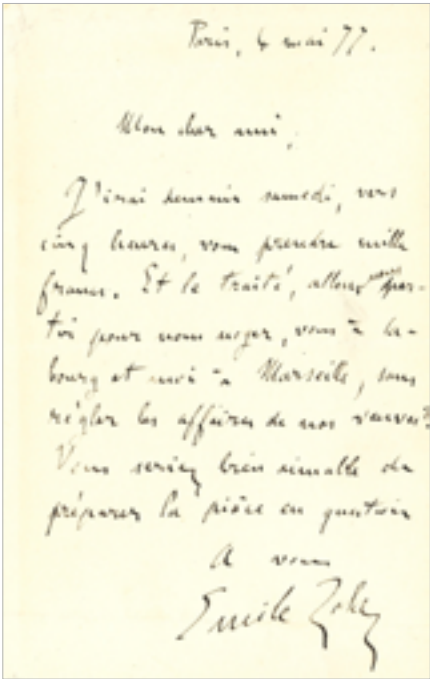 Paris, 4 mai 77.
Mon cher ami,
J'irai demain samedi, vers
cinq heures, vous prendre mille
francs. Et le traité, allons nous par-
tir pour nous noyer, vous à Ca-
bourg et moi à Marseille, sans
régler les affaires de nos veuves?
Vous seriez bien aimable de
préparer la pièce en question
A vous
Emile Zola